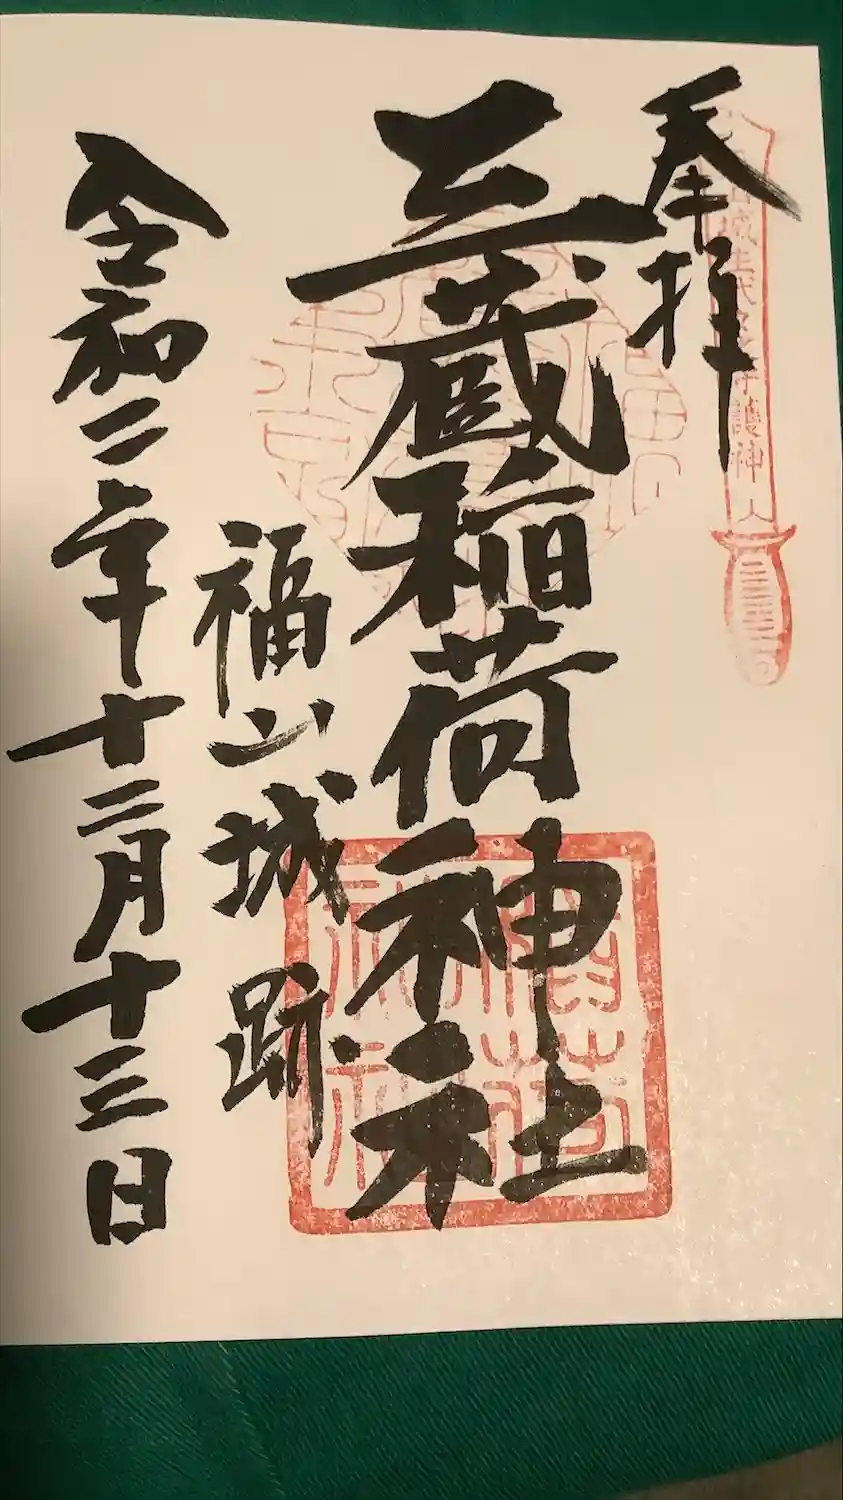 奉拝
三蔵稲荷神社
福山城跡
令和二年十二月十三日
稲荷
神社